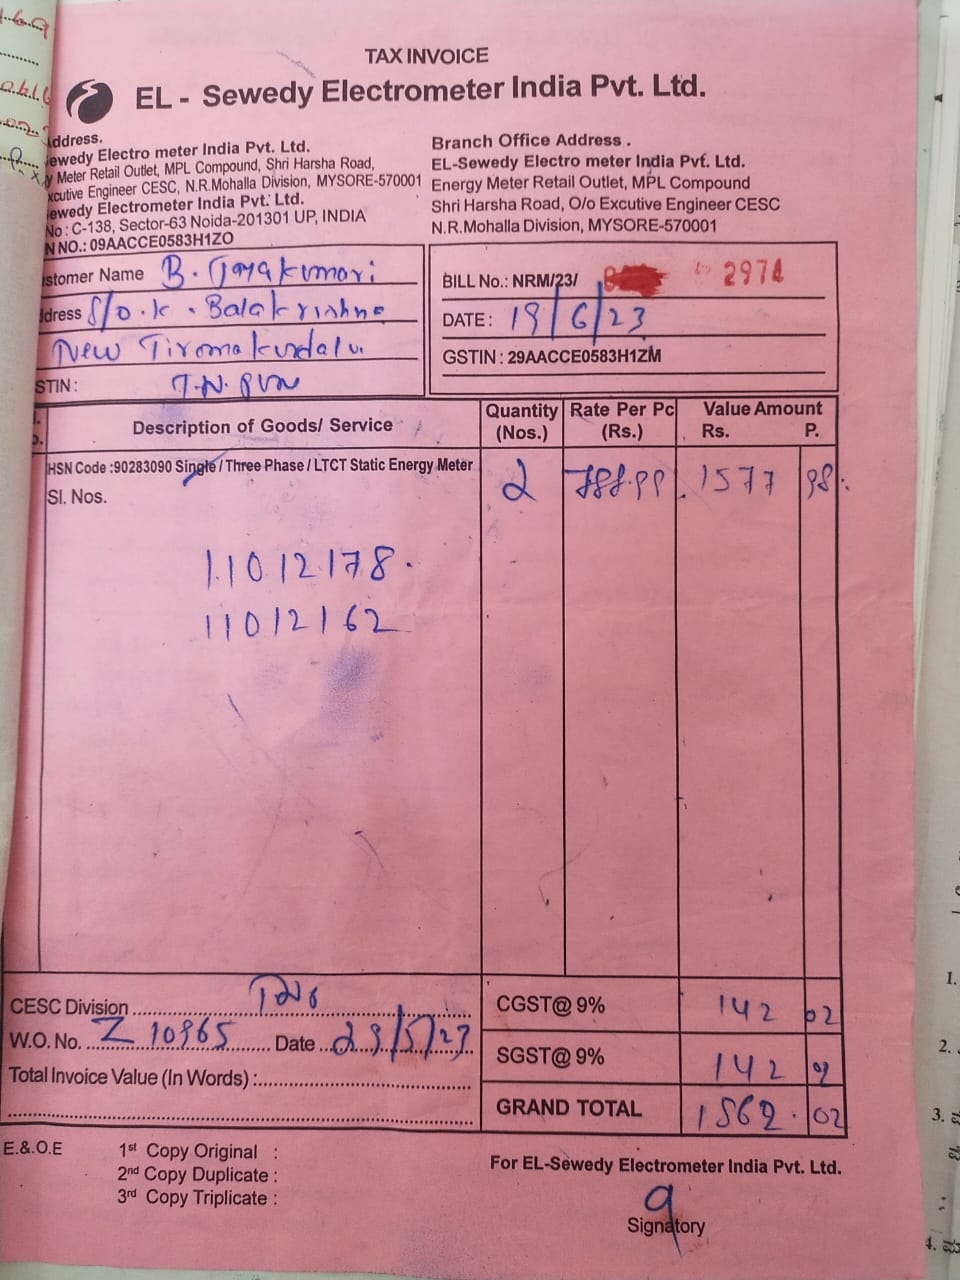 TAX INVOICE
EL - Sewedy Electrometer India Pvt. Ltd.
ddress.
ewedy Electro meter India Pvt. Ltd.
y Meter Retail Outlet, MPL Compound, Shri Harsha Road,
xcutive Engineer CESC, N.R.Mohalla Division, MYSORE-570001
ewedy Electrometer India Pvt. Ltd.
No : C-138, Sector-63 Noida-201301 UP, INDIA
N NO.: 09AACCE0583H1ZO
Branch Office Address .
EL-Sewedy Electro meter India Pvt. Ltd.
Energy Meter Retail Outlet, MPL Compound
Shri Harsha Road, O/o Excutive Engineer CESC
N.R.Mohalla Division, MYSORE-570001
stomer Name B. Jayakumari
dress S/o. K. Balakrishna
New Tiromakudalu
STIN : T.N. Pura
BILL No.: NRM/23/ 2974
DATE : 19/6/23
GSTIN : 29AACCE0583H1ZM
Description of Goods/ Service
Quantity (Nos.)
Rate Per Pc (Rs.)
Value Amount
Rs. P.
HSN Code :90283090 Single / Three Phase / LTCT Static Energy Meter
2 788.99 1577 98
Sl. Nos.
11012178
11012162
CESC Division
W.O. No. Z 10965 Date 29/5/23
Total Invoice Value (In Words) :
CGST@ 9% 142 02
SGST@ 9% 142 02
GRAND TOTAL 1862.02
E.& O.E
1st Copy Original :
2nd Copy Duplicate :
3rd Copy Triplicate :
For EL-Sewedy Electrometer India Pvt. Ltd.
Signatory
1.
2.
3.
4.